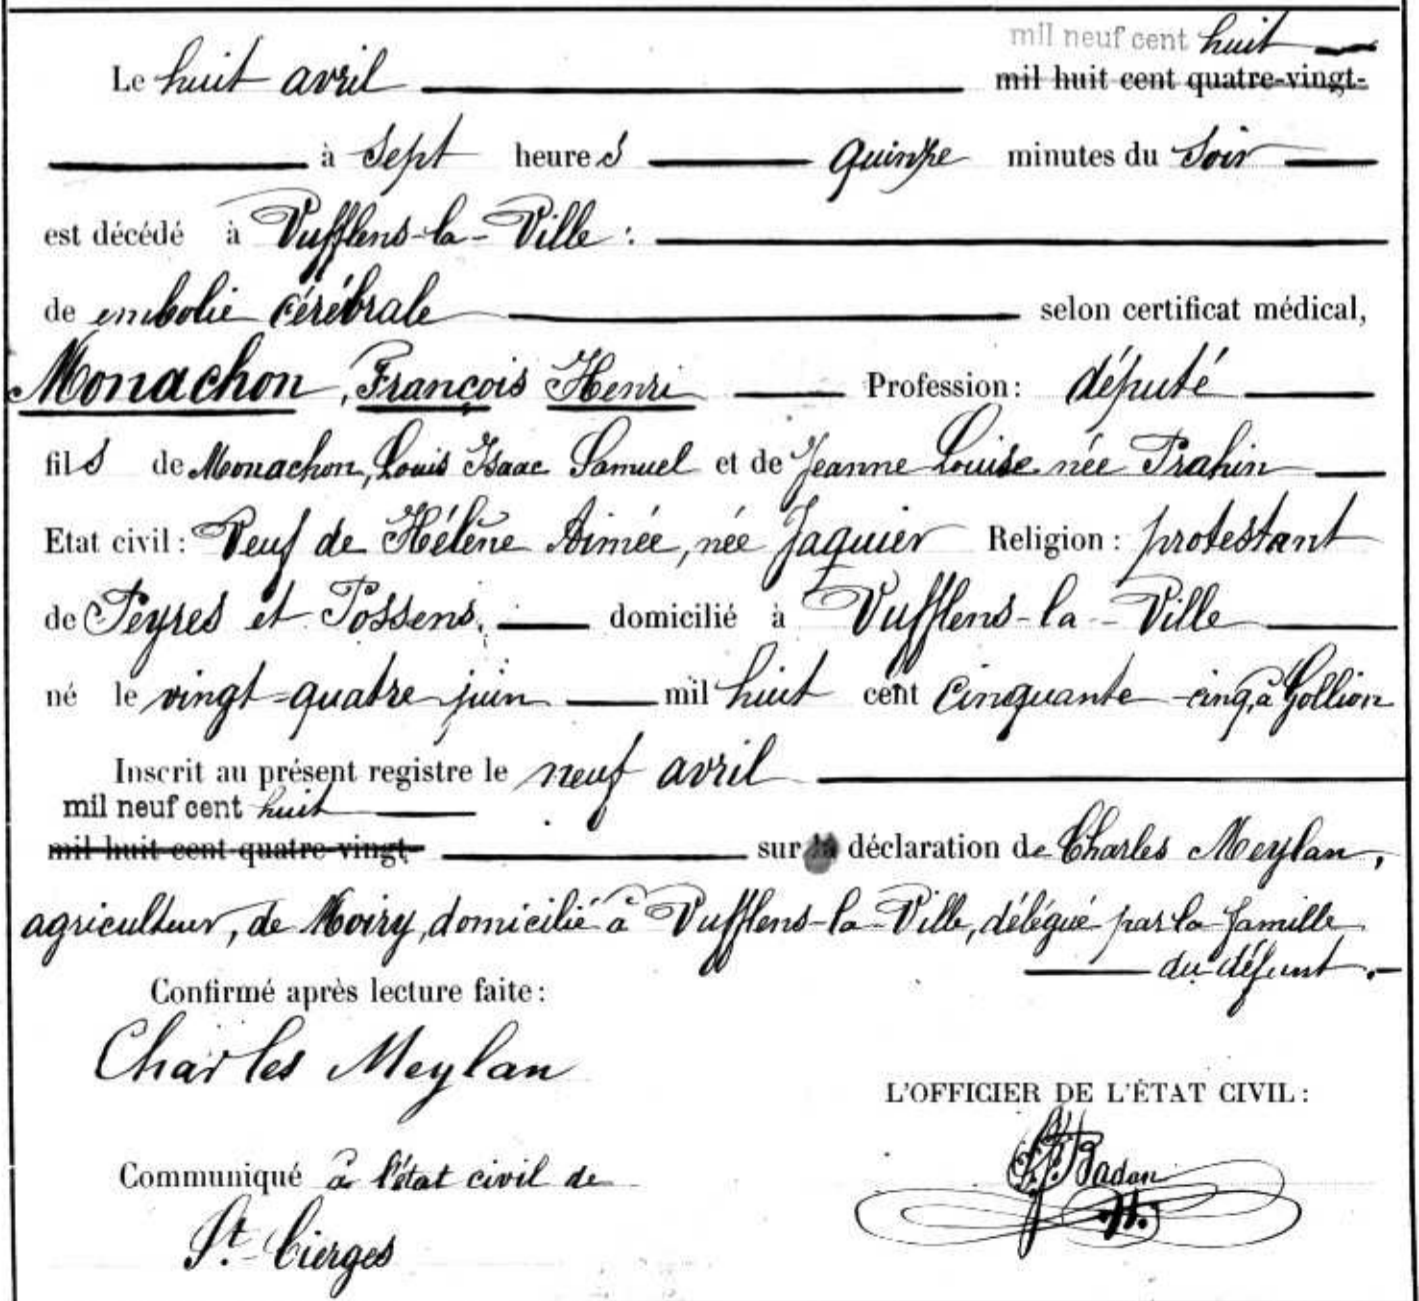 mil neuf cent huit
Le huit avril mil huit cent quatre-vingt-
à sept heures quinze minutes du soir
est décédé à Vufflens-la-Ville :
de embolie cérébrale selon certificat médical,
Monachon, François Henri Profession : député
fils de Monachon, Louis Isaac Samuel et de Jeanne Louise née Prahin
Etat civil : Veuf de Hélène Aimée, née Jaquier Religion : protestant
de Peyres et Possens, domicilié à Vufflens-la-Ville
né le vingt-quatre juin mil huit cent cinquante-cinq, à Gollion
Inscrit au présent registre le neuf avril
mil neuf cent huit
mil huit cent quatre-vingt- sur la déclaration de Charles Meylan,
agriculteur, de Moiry, domicilié à Vufflens-la-Ville, délégué par la famille
du défunt.
Confirmé après lecture faite :
Charles Meylan
L'OFFICIER DE L'ÉTAT CIVIL :
Badan
Communiqué à l'état civil de
St. Cierges